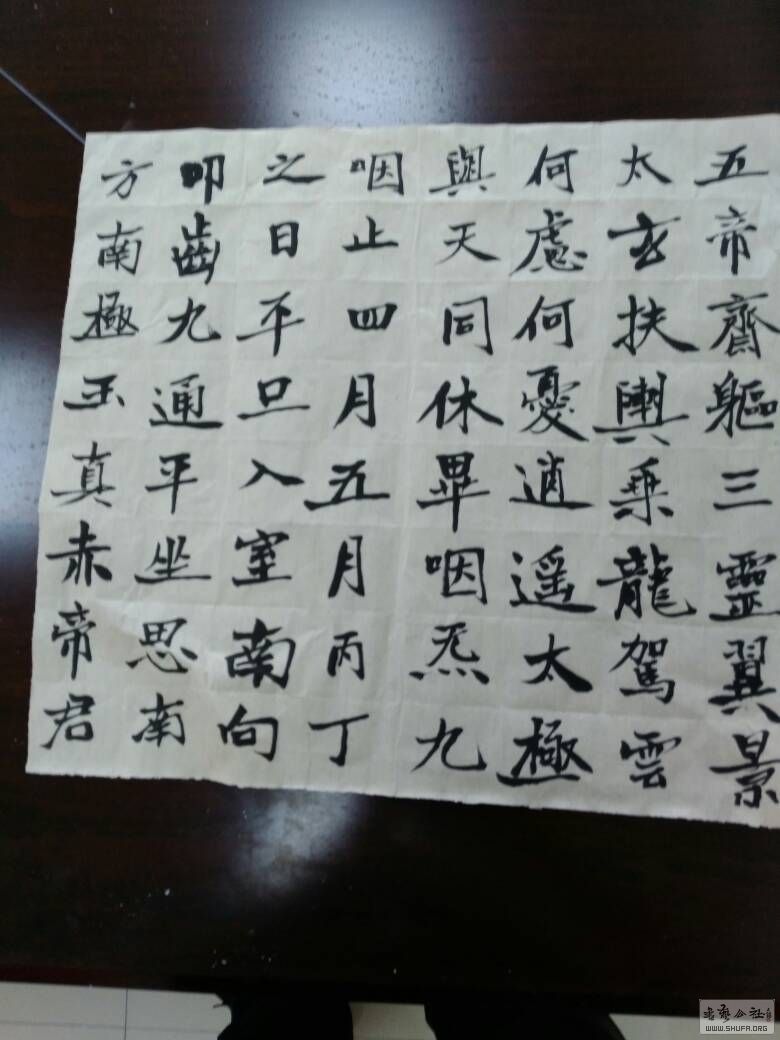 五帝齋軀三靈翼景
太玄扶輿乘龍駕雲
何慮何憂逍遥太極
與天同休畢咽炁九
咽止四月五月丙丁
之日平旦入室南向
叩齒九通平坐思南
方南極玉真赤帝君
WWW.SHUFA.ORG